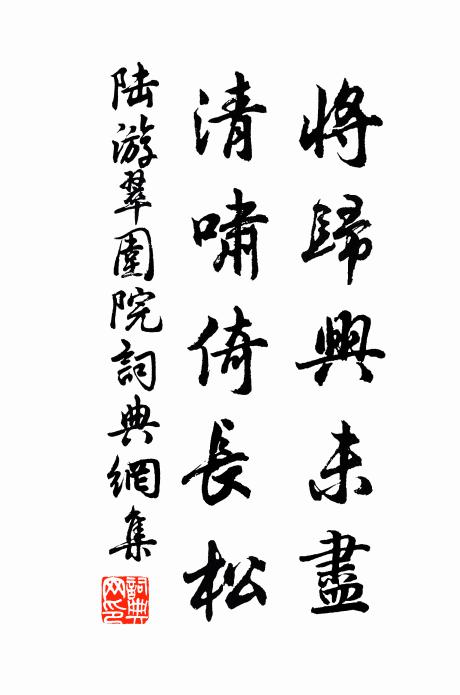 將歸興未盡
清嘯倚長松
陸游翠圍院詞典網集
詞典網印